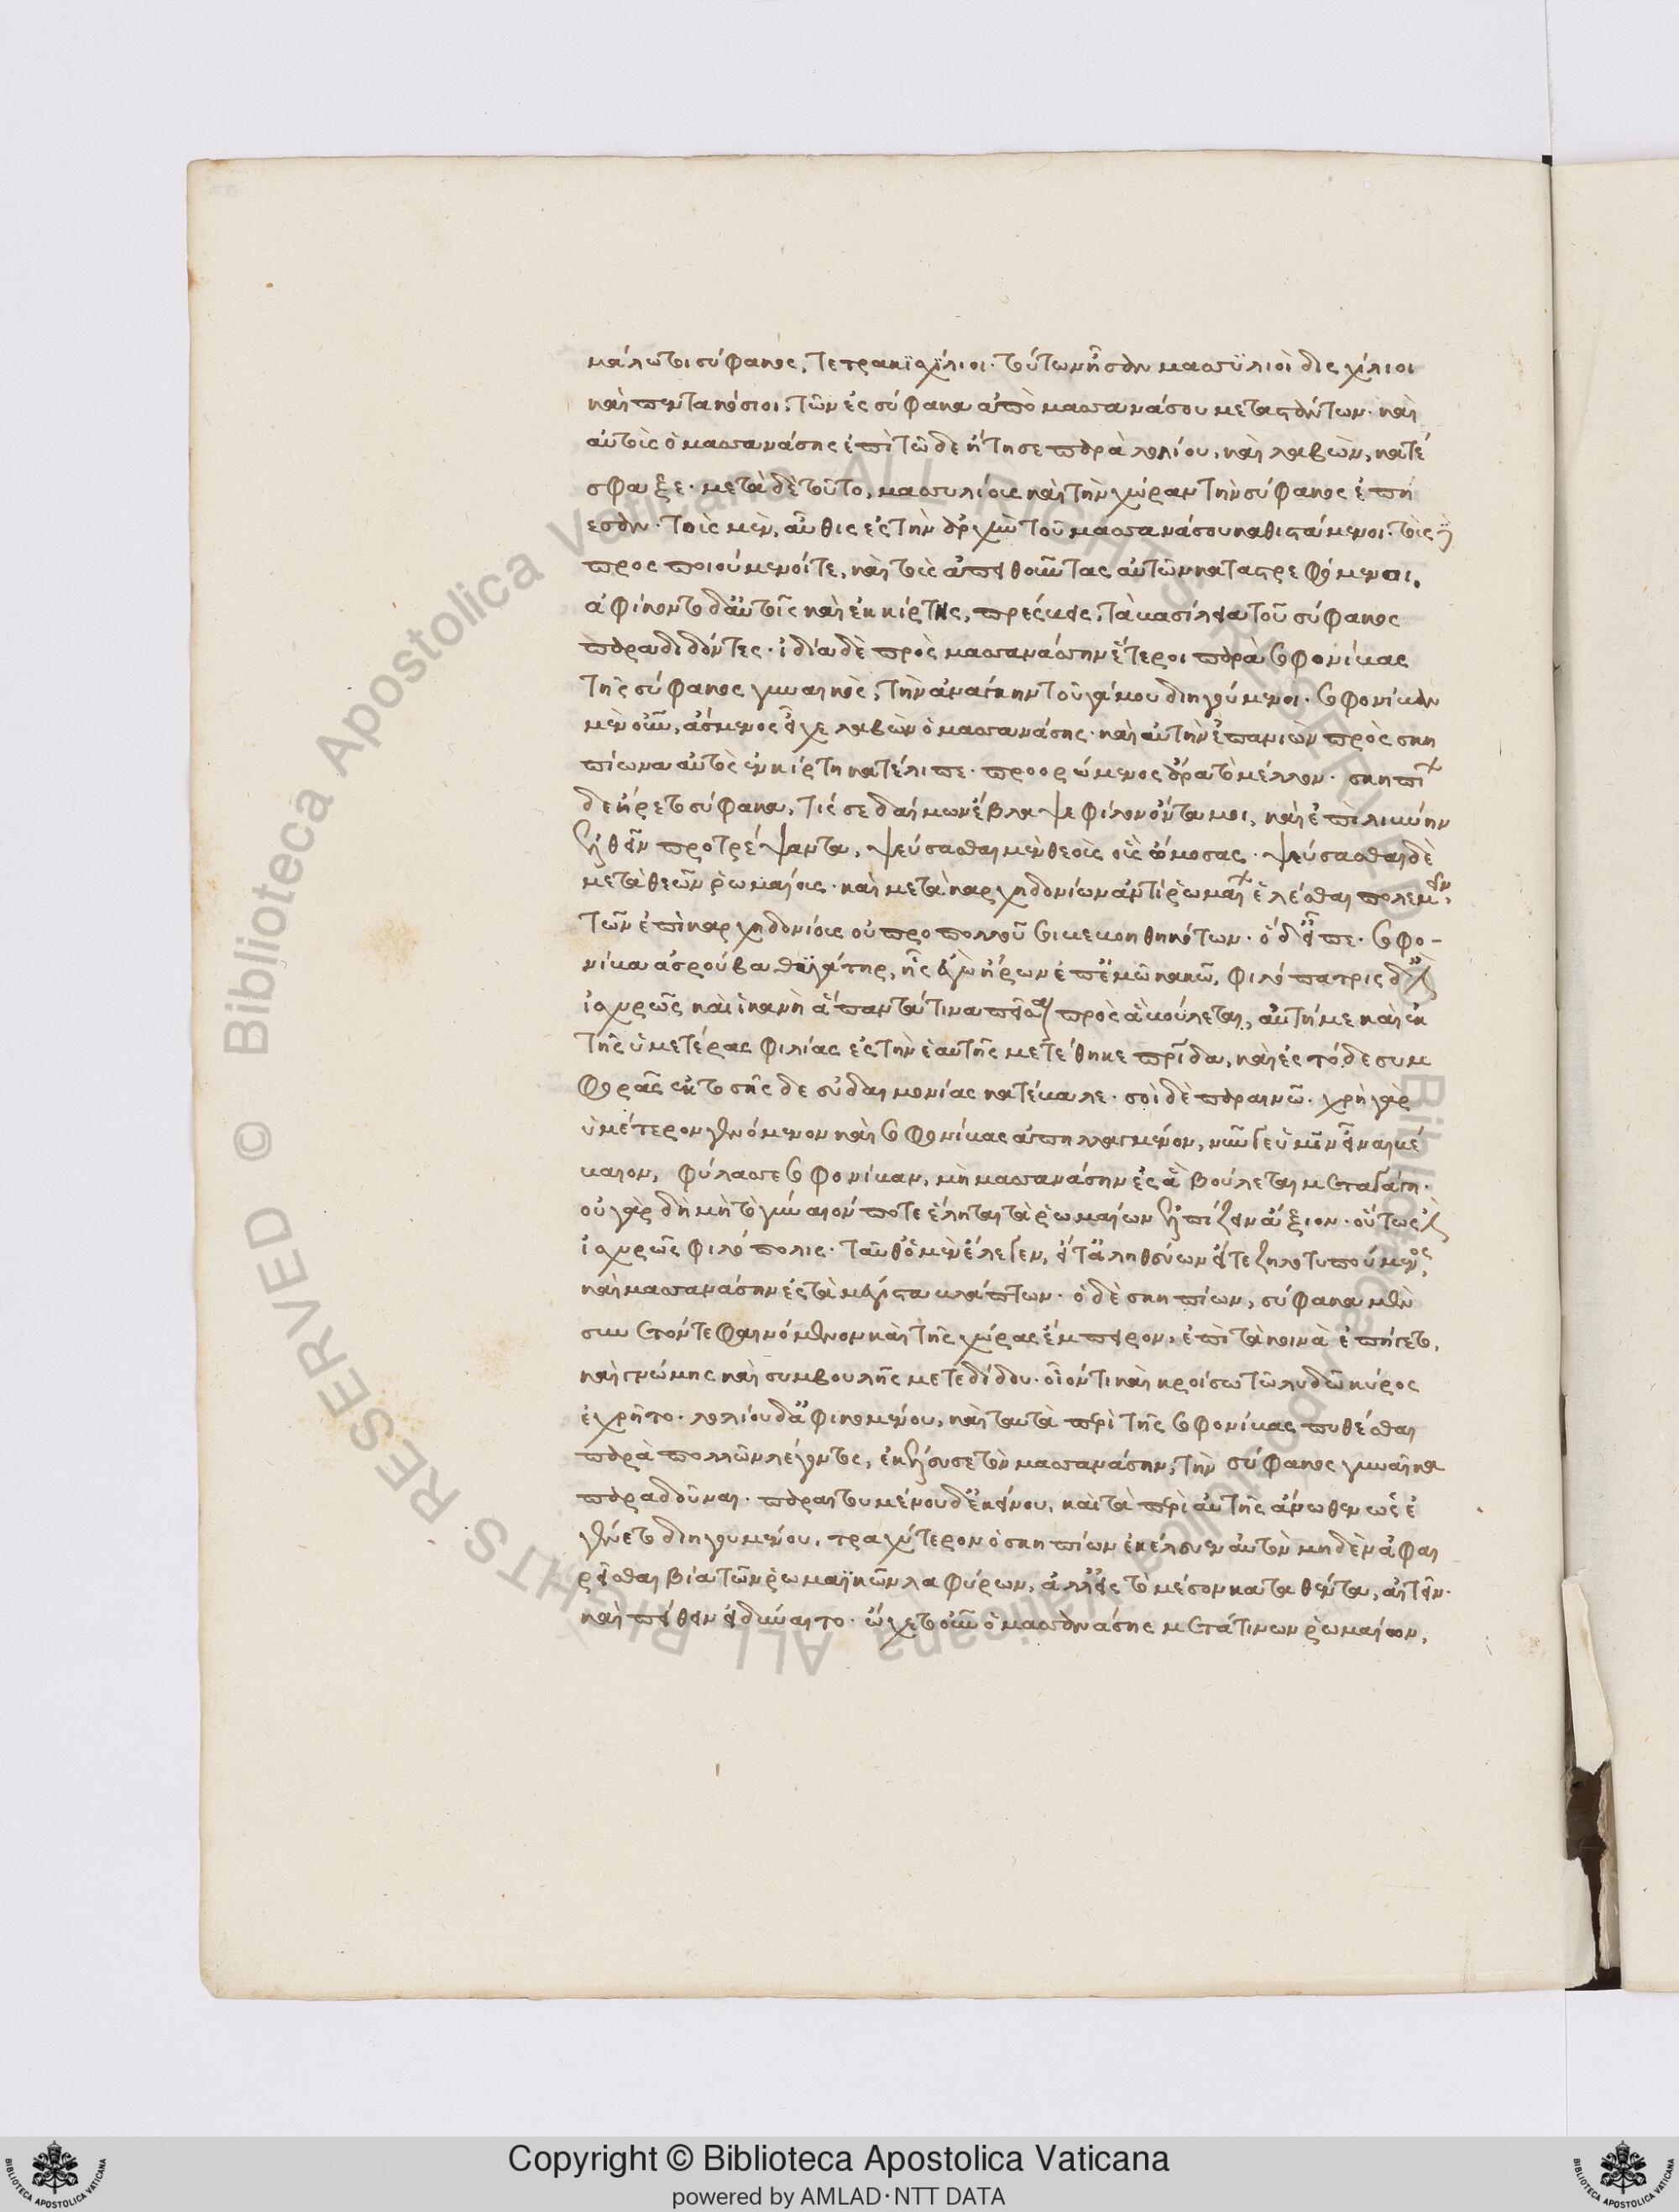 μάλωτοι σύφακος, τετρακϊσχίλιοι· τούτων ἦσαν μασσύλιοὶ δισχίλιοι
καὶ πεντακόσιοι, τῶν ἐς σύφακα ἀπὸ μασσανάσου μεταστάντων· καὶ
αὐτοὺς ὁ μασσανάσης ἐπὶ τῶδε ᾔτησε παρὰ λελίου, καὶ λαβὼν, κατέ
σφαξε· μετὰ δὲ τοῦτο, μασσυλίους καὶ τὴν χώραν τὴν σύφακος ἐπῄ
εσαν· τοὺς μὲν, αὖθις ἐς τὴν ἀρχὴν τοῦ μασσανάσου καθιστάμενοι· τοὺς δὲ
προσποιούμενοί τε, καὶ τοὺς ἀπειθοῦντας αὐτῶν καταστρεφόμενοι.
ἀφίκοντο δ' αὐτοῖς καὶ ἐκ κίρτης, πρέσβεις, τὰ βασίλεια τοῦ σύφακος
παραδιδόντες· ἰδία δὲ πρὸς μασσανάσσην ἕτεροι παρὰ σοφονίβας
τῆς σύφακος γυναικὸς, τὴν ἀνάγκην τοῦ γάμου διηγούμενοι· σοφονίβαν
μὲν οὖν, ἄσμενος εἶχε λαβὼν ὁ μασσανάσης· καὶ αὐτὴν ἐπανιὼν πρὸς σκη
πίωνα αὐτὸς ἐν κίρτη κατέλιπε· προορώμενος ἄρα τὸ μέλλον· σκηπίων
δὲ ἤρετο σύφακα, τίς σε δαίμων ἔβλαψε φίλον ὄντα μοι, καὶ ἐπὶ λιβύην
ἐλθεῖν προτρέψαντα, ψεύσασθαι μὲν θεοὺς οὓς ὤμοσας· ψεύσασθαι δὲ
μετὰ θεῶν ῥωμαίους· καὶ μετὰ καρχηδονίων ἀντὶ ῥωμαίων ἑλέσθαι πολεμεῖν,
τῶν ἐπὶ καρχηδονίους οὐ πρὸ πολλοῦ σοι βεβοηθηκότων· ὁ δ' εἶπε· σοφο-
νίβα ἀσρούβα θϋγάτηρ, ἧς ἐγὼ ἤρων ἐπ' ἐμῶ κακῶ, φιλόπατρις δ' ἐστὶν
ἰσχυρῶς καὶ ἱκανὴ ἅπαντά τινα πεῖσαι πρὸς ἃ βούλεται, αὐτή με καὶ ἐκ
τῆς ὑμετέρας φιλίας ἐς τὴν ἑαυτῆς μετέθηκε πατρίδα, καὶ ἐς τόδε συμ
φορᾶς ἐκ τοσῆσδε εὐδαιμονίας κατέβαλε· σοὶ δὲ παραινῶ· χρὴ γὰρ
ὑμέτερον γενόμενον καὶ σοφονίβας ἀπηλλαγμένον, νῦν γε ὑμῖν εἶναι βέ
βαιον, φύλασσε σοφονίβαν, μὴ μασσανάσην ἐς ἃ βούλεται μεταγάγη·
οὐ γὰρ δὴ μὴ τὸ γύναιόν ποτε ἕληται τὰ ῥωμαίων ἐλπίζειν ἄξιον· οὕτως ἐστὶν
ἰσχυρῶς φιλόπολις· ταῦθ' ὁ μὲν ἔλεγεν, εἴτ' ἀληθεύων εἴτε ζηλοτυπούμενος,
καὶ μασσανάσην ἐς τὰ μέγιστα βλάπτων· ὁ δὲ σκηπίων, σύφακα μὲν
συνετόν τε φαινόμενον καὶ τῆς χώρας ἔμπειρον, ἐπὶ τὰ κοινὰ ἐπήγετο,
καὶ γνώμης καὶ συμβουλῆς μετεδίδου· οἷόν τι καὶ κροίσω τῶ λυδῶ κύρος
ἐχρῆτο· λελίου δ' ἀφικομένου, καὶ ταὐτὰ περὶ τῆς σοφονίβας πυθέσθαι
παρὰ πολλῶν λέγοντος, ἐκέλευσε τὸν μασσανάσην, τὴν σύφακος γυναῖκα
παραδοῦναι· παραιτουμένου δ' ἐκείνου, καὶ τὰ περὶ αὐτῆς ἄνωθεν ὡς ἐ
γένετο διηγουμένου, τραχύτερον ὁ σκηπίων ἐκέλευεν αὐτὸν μηδὲν ἀφαι
ρεῖσθαι βία τῶν ῥωμαϊκῶν λαφύρων, ἀλλ' ἐς τὸ μέσον καταθέντα, αἰτεῖν·
καὶ πείθειν εἰ δύναιτο· ᾤχετο οὖν ὁ μασσανάσης μετά τινων ῥωμαίων,